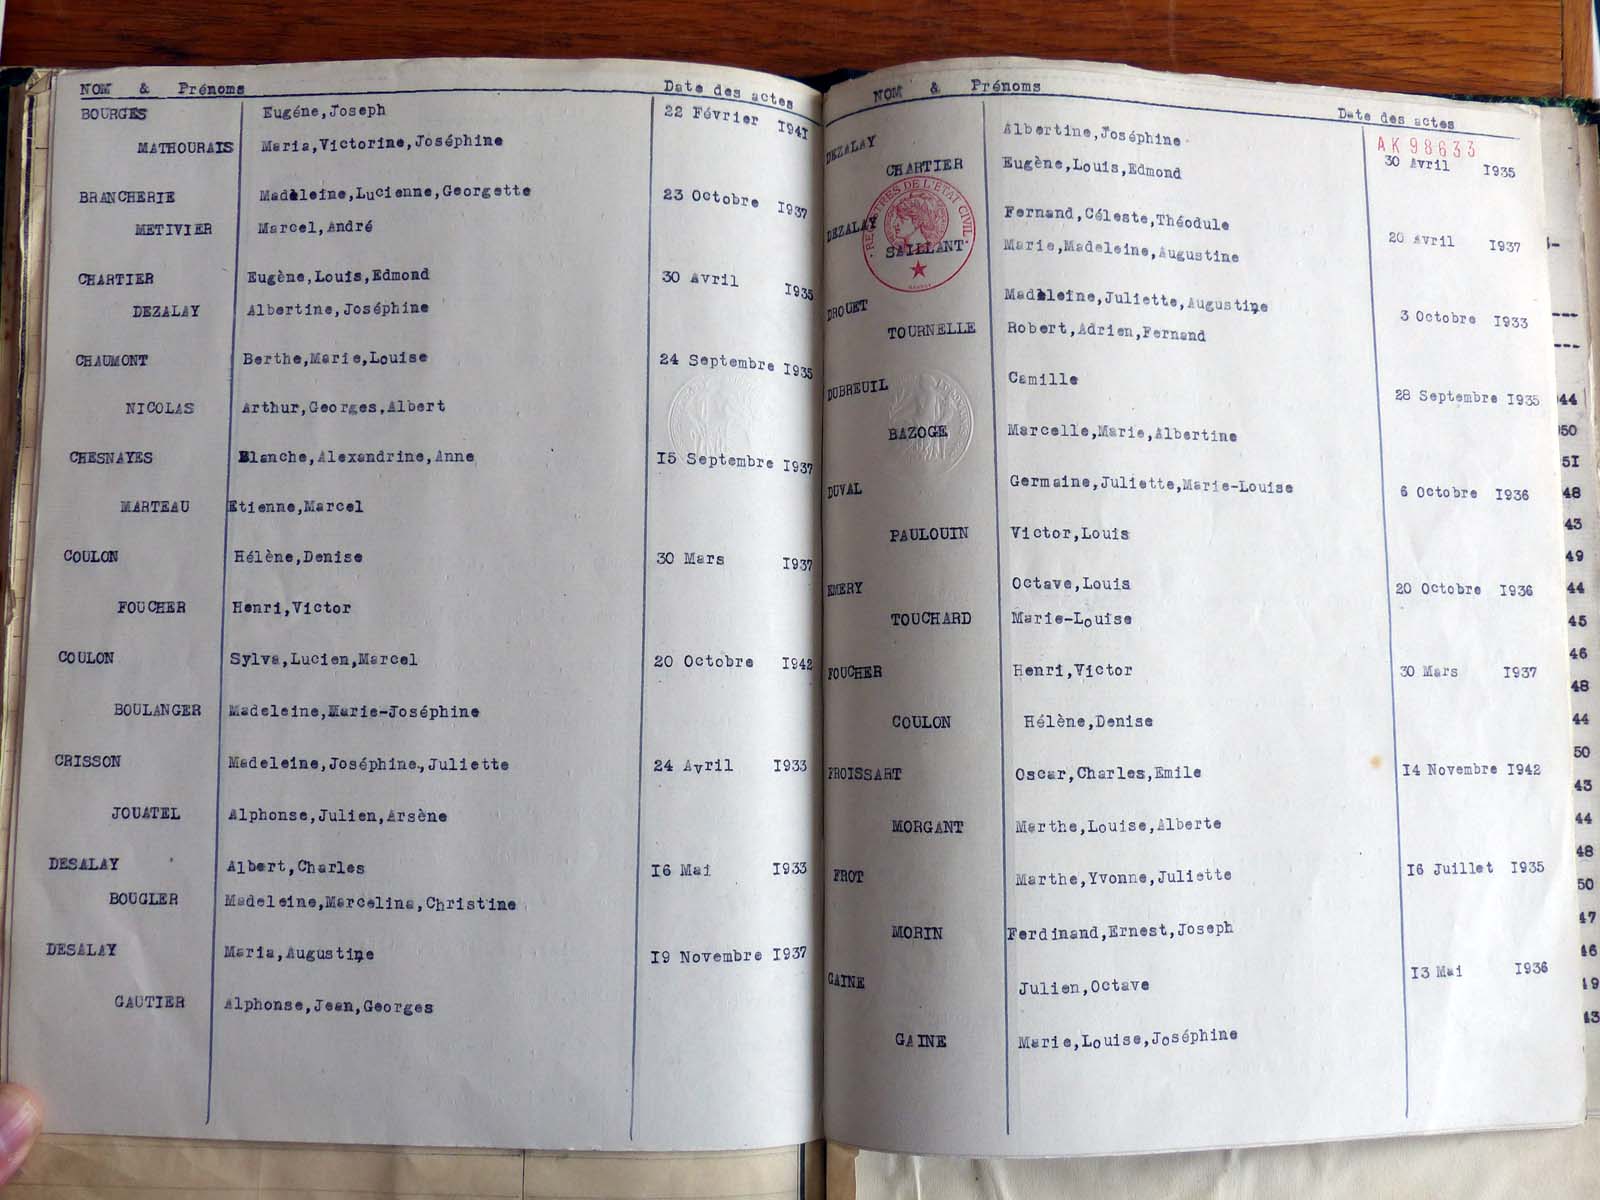 NOM & Prénoms Date des actes
BOURGES Eugéne,Joseph 22 Février 1941
MATHOURAIS Maria,Victorine,Joséphine
BRANCHERIE Madeleine,Lucienne,Georgette 23 Octobre 1937
METIVIER Marcel,André
CHARTIER Eugène,Louis,Edmond 30 Avril 1935
DEZALAY Albertine,Joséphine
CHAUMONT Berthe,Marie,Louise 24 Septembre 1935
NICOLAS Arthur,Georges,Albert
CHESNAYES Blanche,Alexandrine,Anne 15 Septembre 1937
MARTEAU Etienne,Marcel
COULON Hélène,Denise 30 Mars 1937
FOUCHER Henri,Victor
COULON Sylva,Lucien,Marcel 20 Octobre 1942
BOULANGER Madeleine,Marie-Joséphine
CRISSON Madeleine,Joséphine,Juliette 24 Avril 1933
JOUATEL Alphonse,Julien,Arsène
DESALAY Albert,Charles 16 Mai 1933
BOUGLER Madeleine,Marcelina,Christine
DESALAY Maria,Augustine 19 Novembre 1937
GAUTIER Alphonse,Jean,Georges
NOM & Prénoms Date des actes
AK98633
DEZALAY Albertine,Joséphine 30 Avril 1935
CHARTIER Eugène,Louis,Edmond
REGISTRES DE L'ÉTAT CIVIL
DEZALAY Fernand,Céleste,Théodule 20 Avril 1937
SAILLANT Marie,Madeleine,Augustine
DROUET Madeleine,Juliette,Augustine 3 Octobre 1933
TOURNELLE Robert,Adrien,Fernand
DUBREUIL Camille 28 Septembre 1935
BAZOGE Marcelle,Marie,Albertine
DUVAL Germaine,Juliette,Marie-Louise 6 Octobre 1936
PAULOUIN Victor,Louis
EMERY Octave,Louis 20 Octobre 1936
TOUCHARD Marie-Louise
FOUCHER Henri,Victor 30 Mars 1937
COULON Hélène,Denise
FROISSART Oscar,Charles,Emile 14 Novembre 1942
MORGANT Marthe,Louise,Alberte
FROT Marthe,Yvonne,Juliette 16 Juillet 1935
MORIN Ferdinand,Ernest,Joseph
GAINE Julien,Octave 13 Mai 1936
GAINE Marie,Louise,Joséphine
44
50
51
48
43
49
44
45
46
48
44
50
43
44
48
50
47
46
49
43